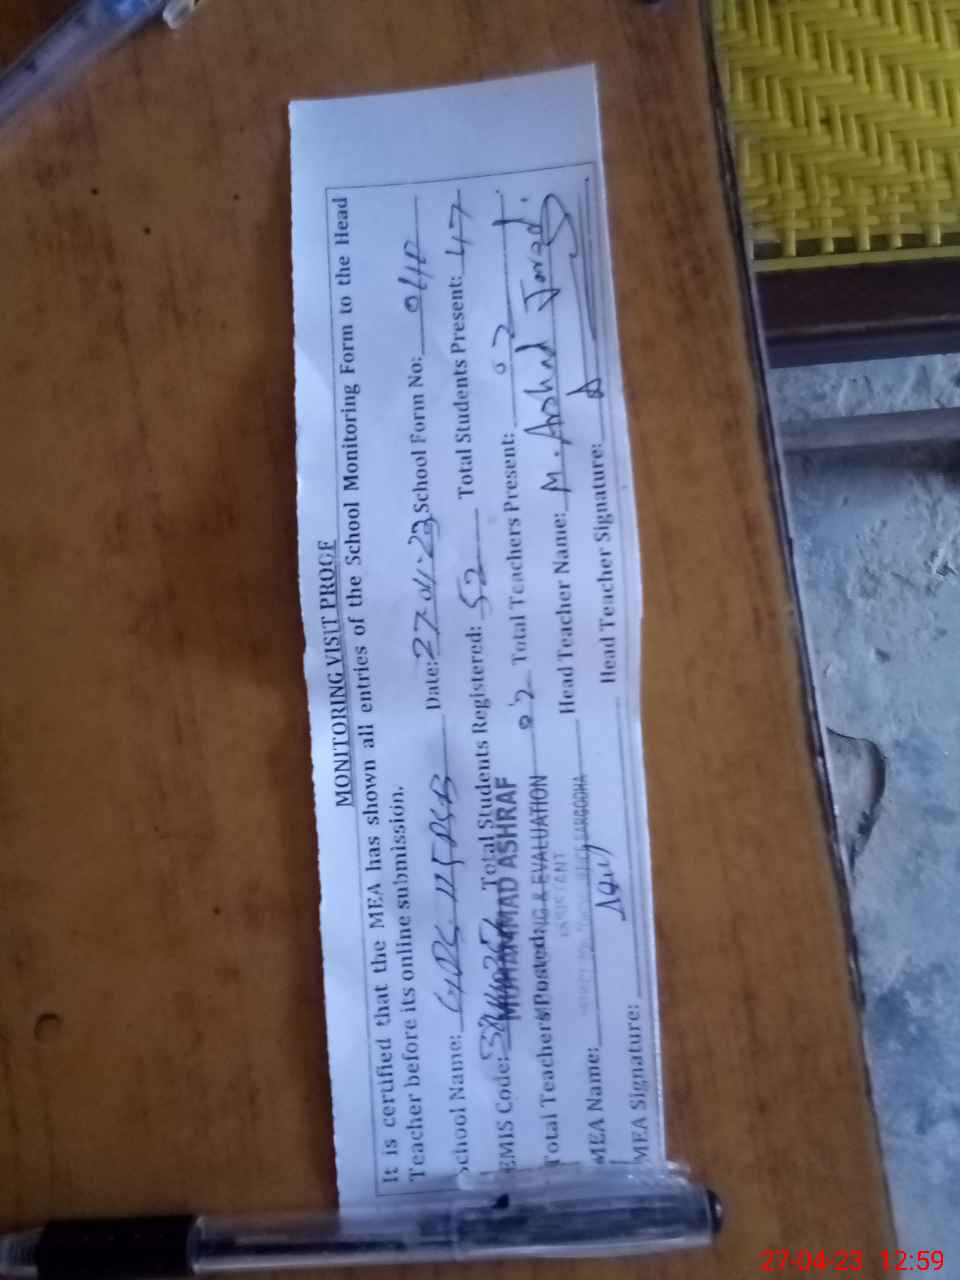 MONITORING VISIT PROOF
It is certified that the MEA has shown all entries of the School Monitoring Form to the Head
Teacher before its online submission.
School Name: GPS 115 SB Date: 27-04-23 School Form No:
EMIS Code: Total Students Registered: 52 Total Students Present: 47
MUHAMMAD ASHRAF
Total Teachers Posted: 02 Total Teachers Present: 02
& EVALUATION
MEA Name: SARGODHA Head Teacher Name: M. Arshad Javed.
MEA Signature: Head Teacher Signature:
27-04-23 12:59